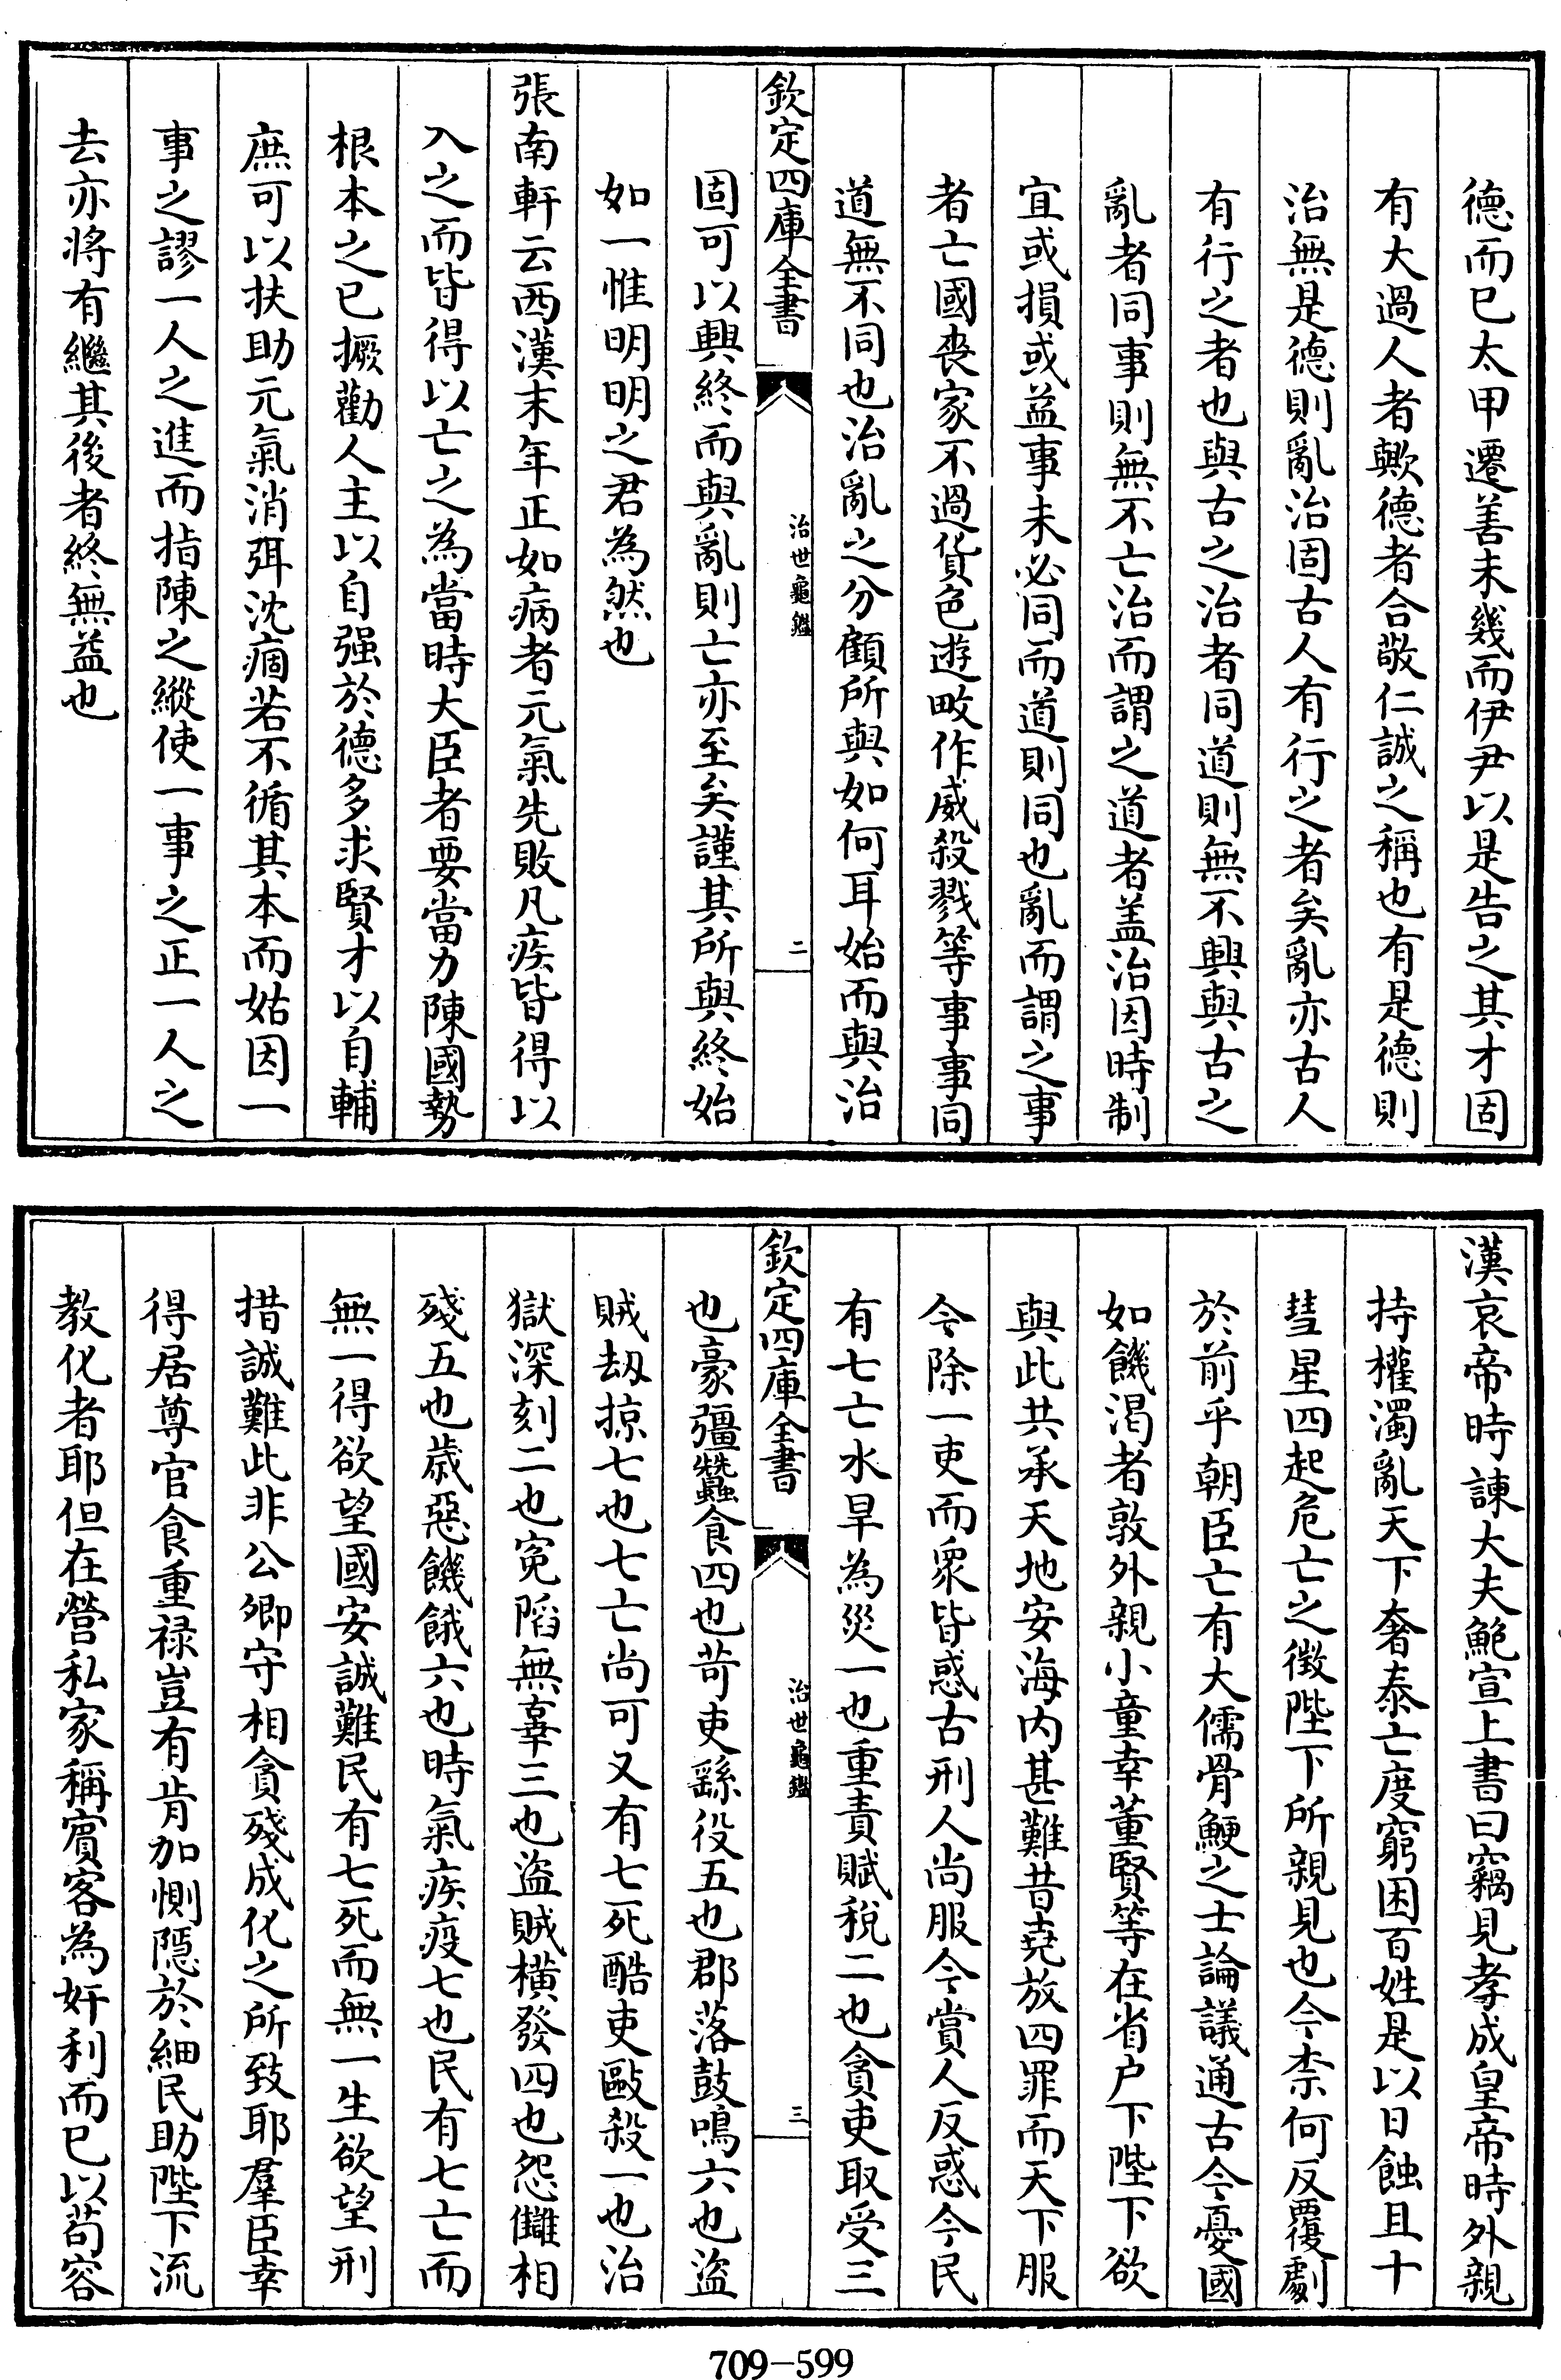 德而已太甲遷善未幾而伊尹以是告之其才固
有大過人者歟德者合敬仁誠之稱也有是德則
治無是德則亂治固古人有行之者矣亂亦古人
有行之者也與古之治者同道則無不興與古之
亂者同事則無不亡治而謂之道者盖治因時制
宜或損或益事未必同而道則同也亂而謂之事
者亡國喪家不過貨色遊畋作威殺戮等事事同
道無不同也治亂之分顧所與如何耳始而與治
欽定四庫全書
治世龜鑑
二
固可以興終而與亂則亡亦至矣謹其所與終始
如一惟明明之君為然也
張南軒云西漢末年正如病者元氣先敗凡疾皆得以
入之而皆得以亡之為當時大臣者要當力陳國勢
根本之已撅勸人主以自强於德多求賢才以自輔
庶可以扶助元氣消弭沈痼若不循其本而姑因一
事之謬一人之進而指陳之縱使一事之正一人之
去亦將有繼其後者終無益也
漢哀帝時諫大夫鮑宣上書曰竊見孝成皇帝時外親
持權濁亂天下奢泰亡度窮困百姓是以日蝕且十
彗星四起危亡之徵陛下所親見也今柰何反覆劇
於前乎朝臣亡有大儒骨鯁之士論議通古今憂國
如饑渴者敦外親小童幸董賢等在省户下陛下欲
與此共承天地安海内甚難昔堯放四罪而天下服
今除一吏而衆皆惑古刑人尚服今賞人反惑今民
有七亡水旱為災一也重責賦稅二也貪吏取受三
欽定四庫全書
治世龜鑑
三
也豪彊蠶食四也苛吏繇役五也郡落鼓鳴六也盜
賊刼掠七也七亡尚可又有七死酷吏毆殺一也治
獄深刻二也寃陷無辜三也盜賊橫發四也怨讎相
殘五也歲惡饑餓六也時氣疾疫七也民有七亡而
無一得欲望國安誠難民有七死而無一生欲望刑
措誠難此非公卿守相貪殘成化之所致耶羣臣幸
得居尊官食重禄豈有肯加惻隱於細民助陛下流
教化者耶但在營私家稱賓客為奸利而已以苟容
709-599